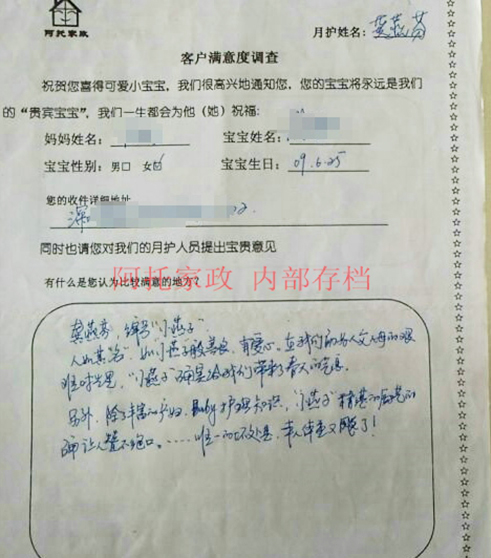 阿托家政
月护姓名: 龚燕芬
客户满意度调查
祝贺您喜得可爱小宝宝,我们很高兴地通知您,您的宝宝将永远是我们
的“贵宾宝宝”,我们一生都会为他(她)祝福:
妈妈姓名: 宝宝姓名:
宝宝性别: 男□ 女☑ 宝宝生日: 09.6.25
您的收件详细地址
深
同时也请您对我们的月护人员提出宝贵意见
阿托家政 内部存档
有什么是您认为比较满意的地方?
龚燕芬,编号“小燕子”
人如其名,如小燕子般善良、有爱心,在我们初为人父母的艰
难时光里,“小燕子”确是给我们带来了春天的气息
另外,除了丰富的产妇、Baby护理知识,“小燕子”精湛的厨艺
确让人赞不绝口。……唯一的不足处是,本人体重又飚了!